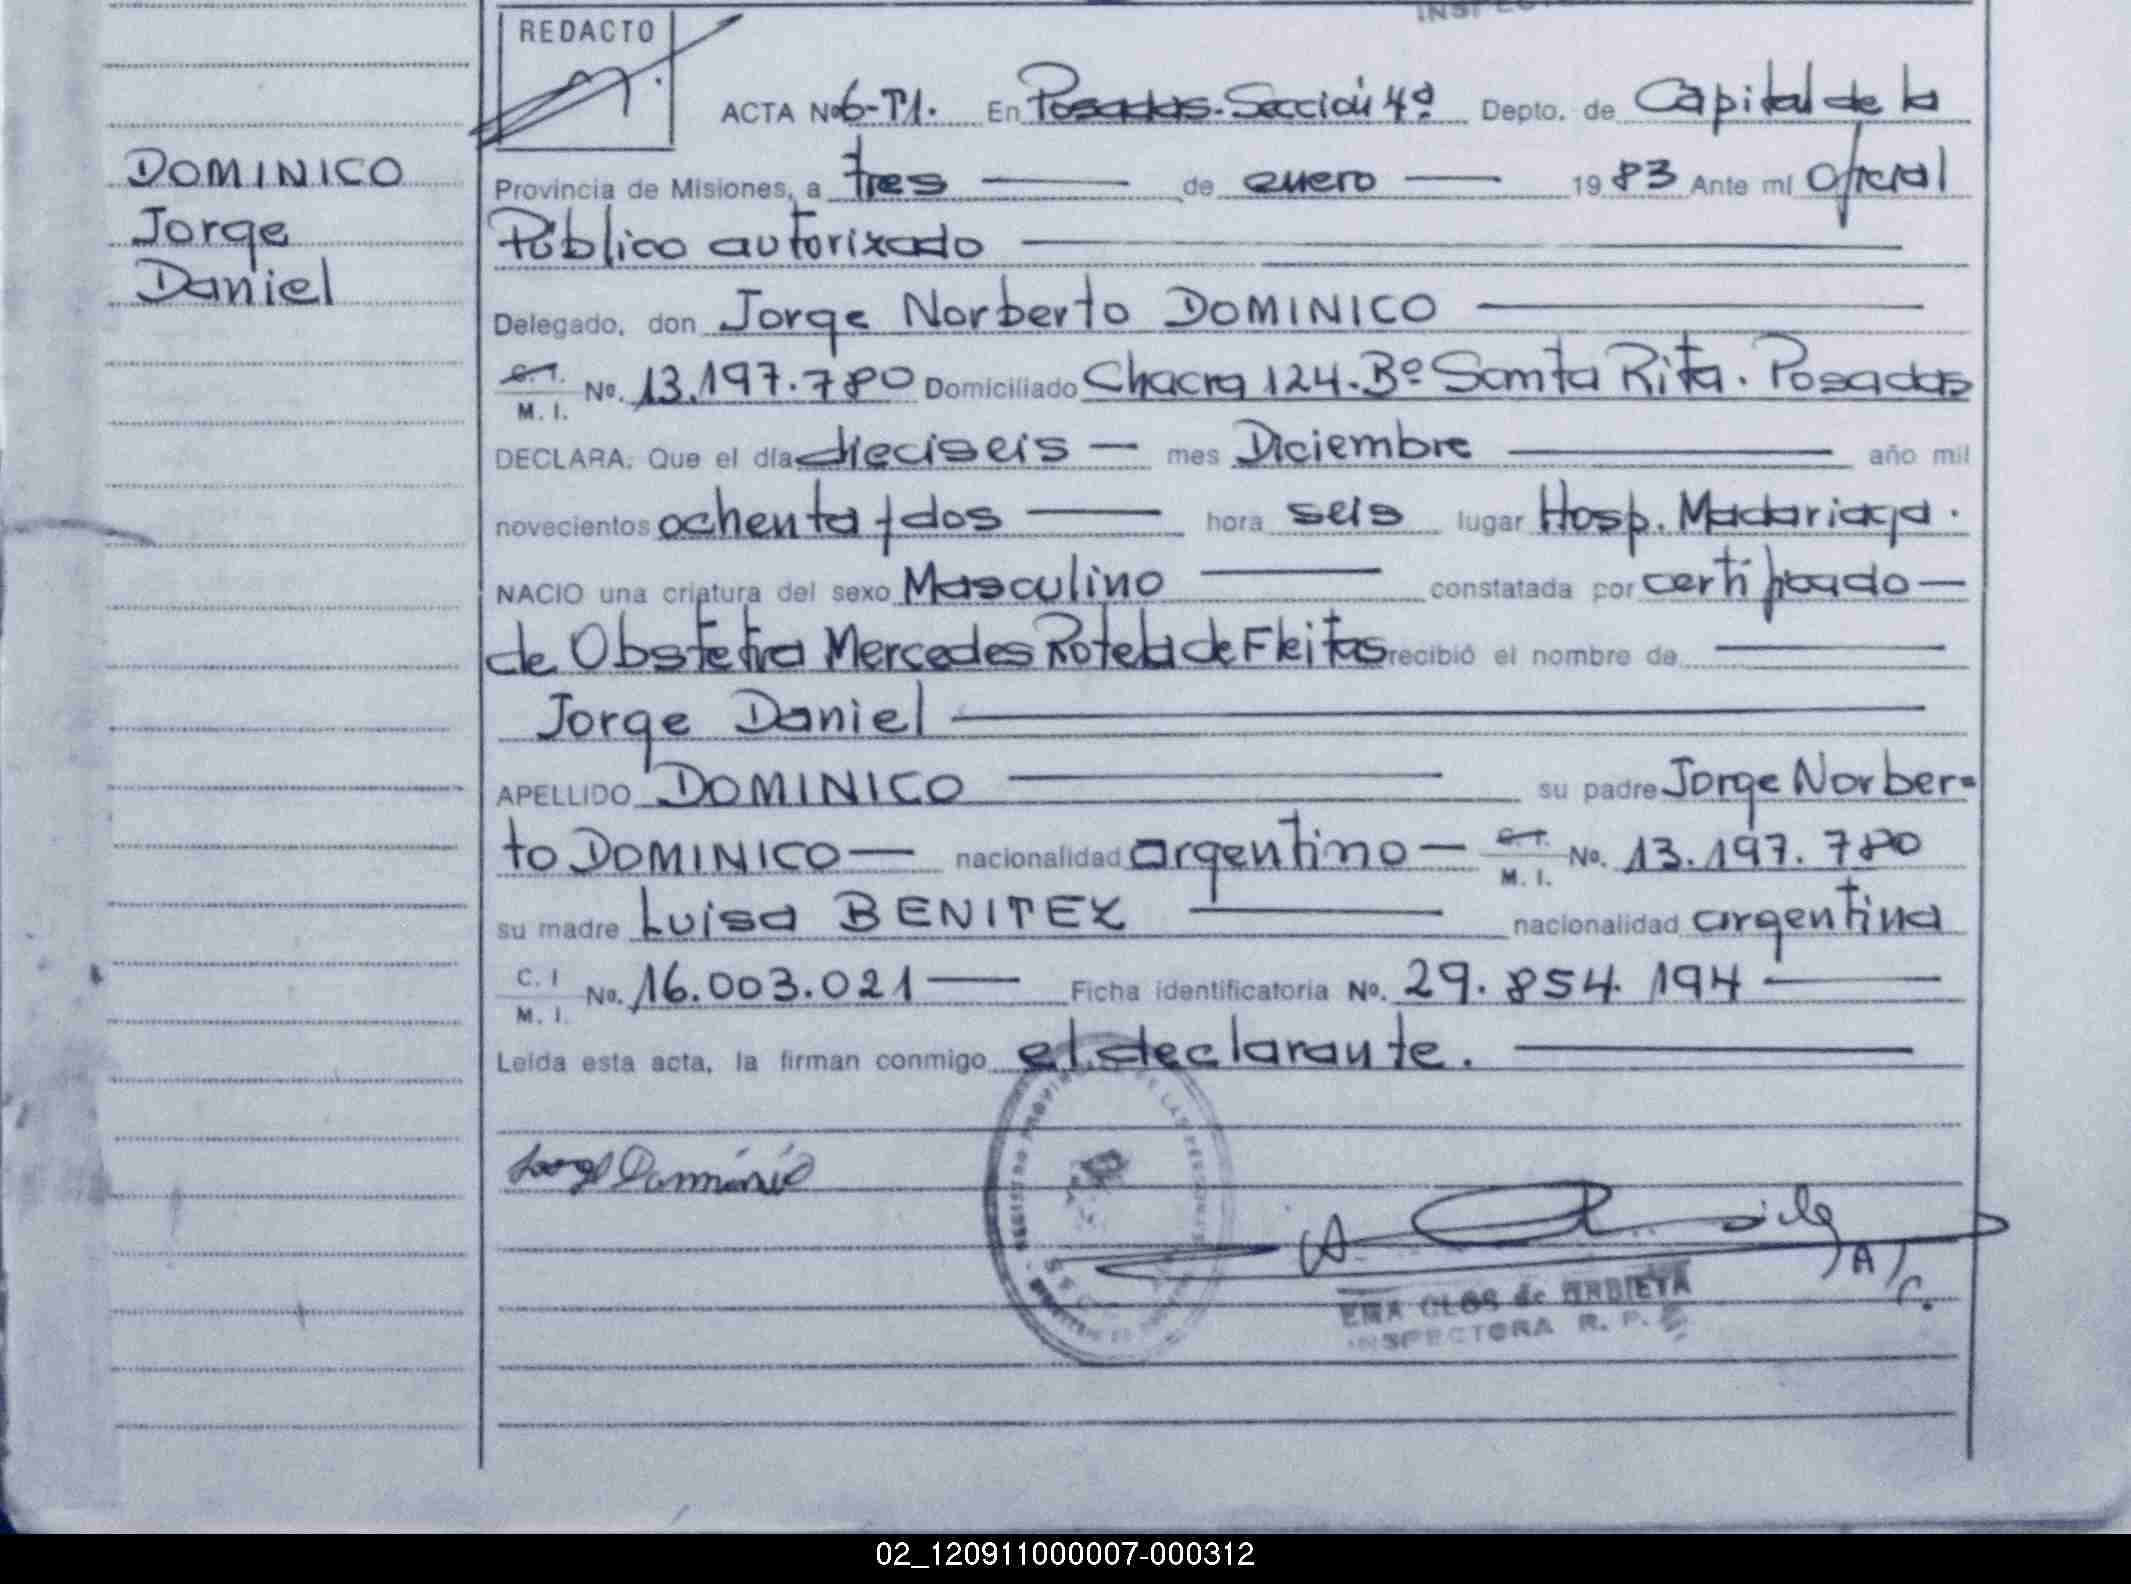 INSPECTO
REDACTO
ACTA No 6-T1. En Posadas. Sección 4ª Depto. de Capital de la
DOMINICO
Jorge
Daniel
Provincia de Misiones, a tres de enero 1983 Ante mí Oficial
Público autorizado
Delegado, don Jorge Norberto DOMINICO
C. I.
M. I. No. 13.197.780 Domiciliado Chacra 124. Bº Santa Rita. Posadas
DECLARA: Que el día dieciseis mes Diciembre año mil
novecientos ochenta y dos hora seis lugar Hosp. Madariaga.
NACIO una criatura del sexo Masculino constatada por certificado
de Obstetra Mercedes Rotela de Fleitas recibió el nombre de
Jorge Daniel
APELLIDO DOMINICO su padre Jorge Norber=
to DOMINICO nacionalidad argentino C. I.
M. I. No. 13.197.780
su madre Luisa BENITEZ nacionalidad argentina
C. I
M. I. No. 16.003.021 Ficha identificatoria No. 29.854.194
Leída esta acta, la firman conmigo el declarante.
REGISTRO PROVINC DE LAS PERSONAS
Jorge Dominico
A/C.
EMA OLGS de URDIETA
INSPECTORA R. P.
02_120911000007-000312